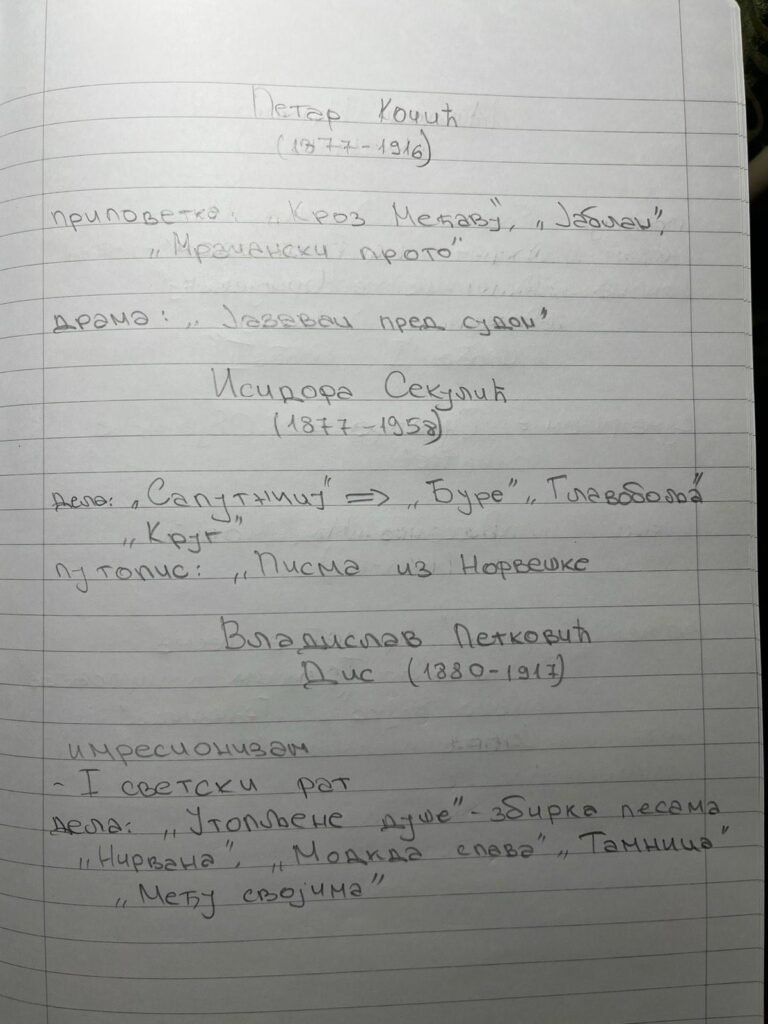 Петар Кочић
(1877-1916)
приповетке: „Кроз Мећаву", „Јаблан",
„Мрачански прото"
драма: „Јазавац пред судом"
Исидора Секулић
(1877-1958)
дела: „Сапутници" => „Буре" „Главобоља"
„Круг"
путопис: „Писма из Норвешке
Владислав Петковић
Дис (1880-1917)
импресионизам
- I светски рат
дела: „Утопљене душе" - збирка песама
„Нирвана", „Можда спава" „Тамница"
„Међу својима"